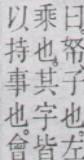 曰帑子也左
乘也其字皆
以持事也會